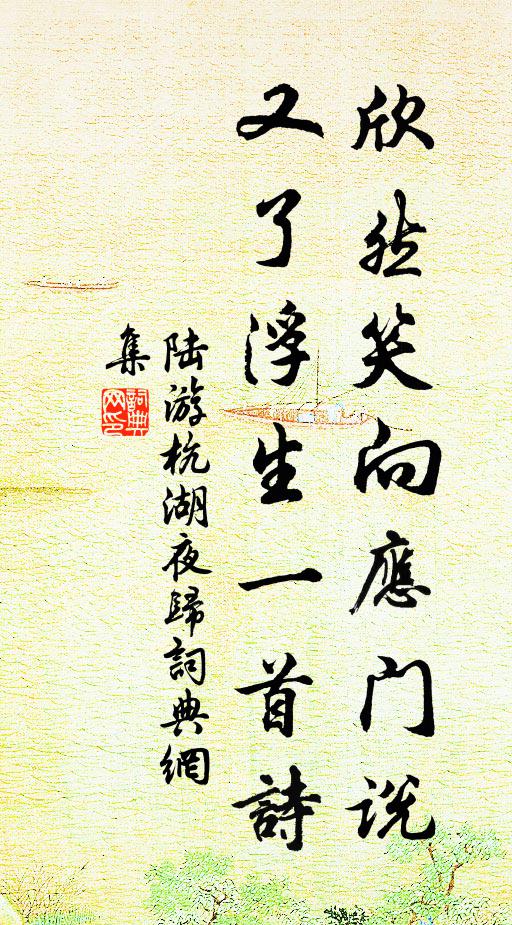 欣然笑向應门说
又了浮生一首詩
陆游杭湖夜歸詞典網
集
詞典网印